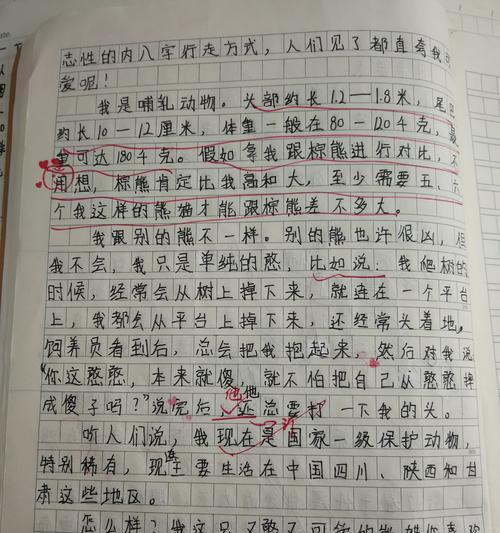 志性的内八字行走方式，人们见了都直夸我可
爱呢！
我是哺乳动物。头部约长1.2—1.8米，尾巴
约长10—12厘米，体重一般在80—120千克，最
重可达180千克。假如拿我跟棕熊进行对比，不
用想，棕熊肯定比我高和大，至少需要五、六
个我这样的熊猫才能跟棕熊差不多大。
我跟别的熊不一样。别的熊也许很凶，但
我不会，我只是单纯的憨，比如说：我爬树的
时候，经常会从树上掉下来，就连在一个平台
上，我都会从平台上掉下来，还经常头着地。
饲养员看到后，总会把我抱起来，然后对我说
“你这憨憨，本来就傻，就不怕把自己从憨憨摔
成傻子吗？”说完后，他还总要打一下我的头。
听人们说，我现在是国家一级保护动物，
特别稀有，现主要生活在中国四川、陕西和甘
肃这些地区。
怎么样？我这只又憨又可爱的熊猫你喜欢